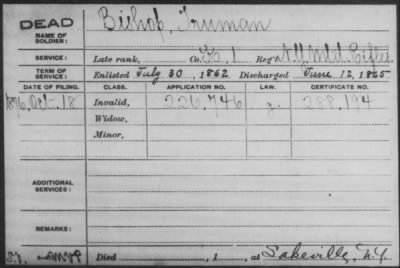 DEAD Bishop, Truman
NAME OF SOLDIER:
SERVICE: Late rank, Co. I Reg't N.Y. Mtd. Rifles
TERM OF SERVICE: Enlisted July 30, 1862 Discharged June 12, 1865
DATE OF FILING. CLASS. APPLICATION NO. LAW. CERTIFICATE NO.
1876, Oct. 18 Invalid, 226,746 g. 288,194
Widow,
Minor,
ADDITIONAL SERVICES:
REMARKS:
Died , 1 , at Lakeville, N.Y.